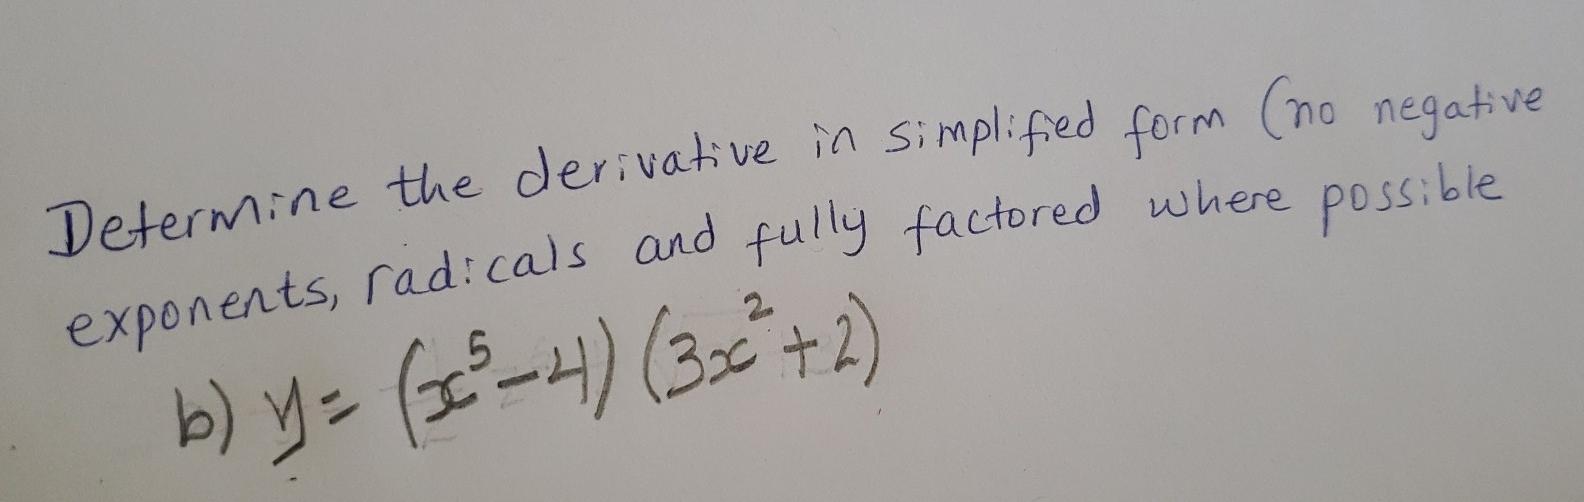 Determine the derivative in simplified form (no negative
exponents, radicals and fully factored where possible
b) y = (x⁵-4) (3x²+2)